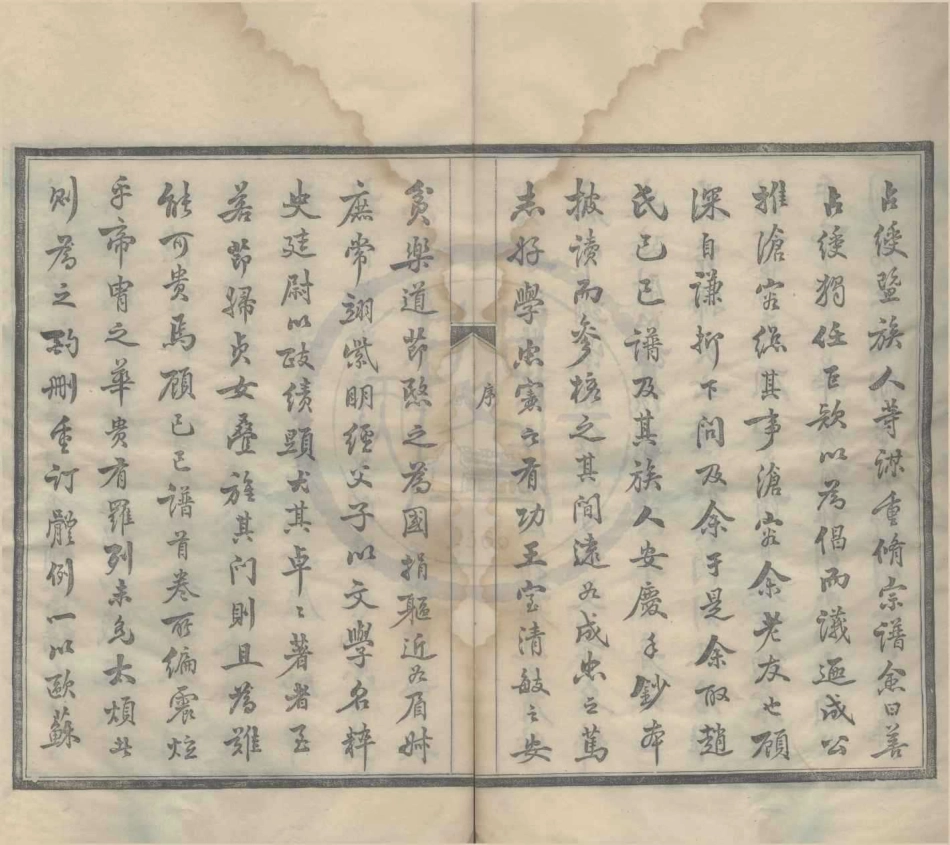 占綬暨族人等謀重脩宗譜僉曰善
占綬獨任巨欵以為倡而議遂成公
推滄容總其事滄容余老友也顧
深自謙抑下問及余于是余取趙
氏己巳譜及其族人安慶手鈔本
披讀而參核之其間遠如成忠之篤
志好學忠實之有功王室清敏之安
序
貧樂道節愍之為國捐軀近如眉州
庶常翊紫明經父子以文學名粹
史廷尉以政績顯尤其卓卓著者至
若節婦貞女叠旌其門則且為難
能可貴焉顧己巳譜首卷所編震炫
乎帝胄之華貴有羅列未免太煩此
則為之酌刪重訂體例一以歐蘇